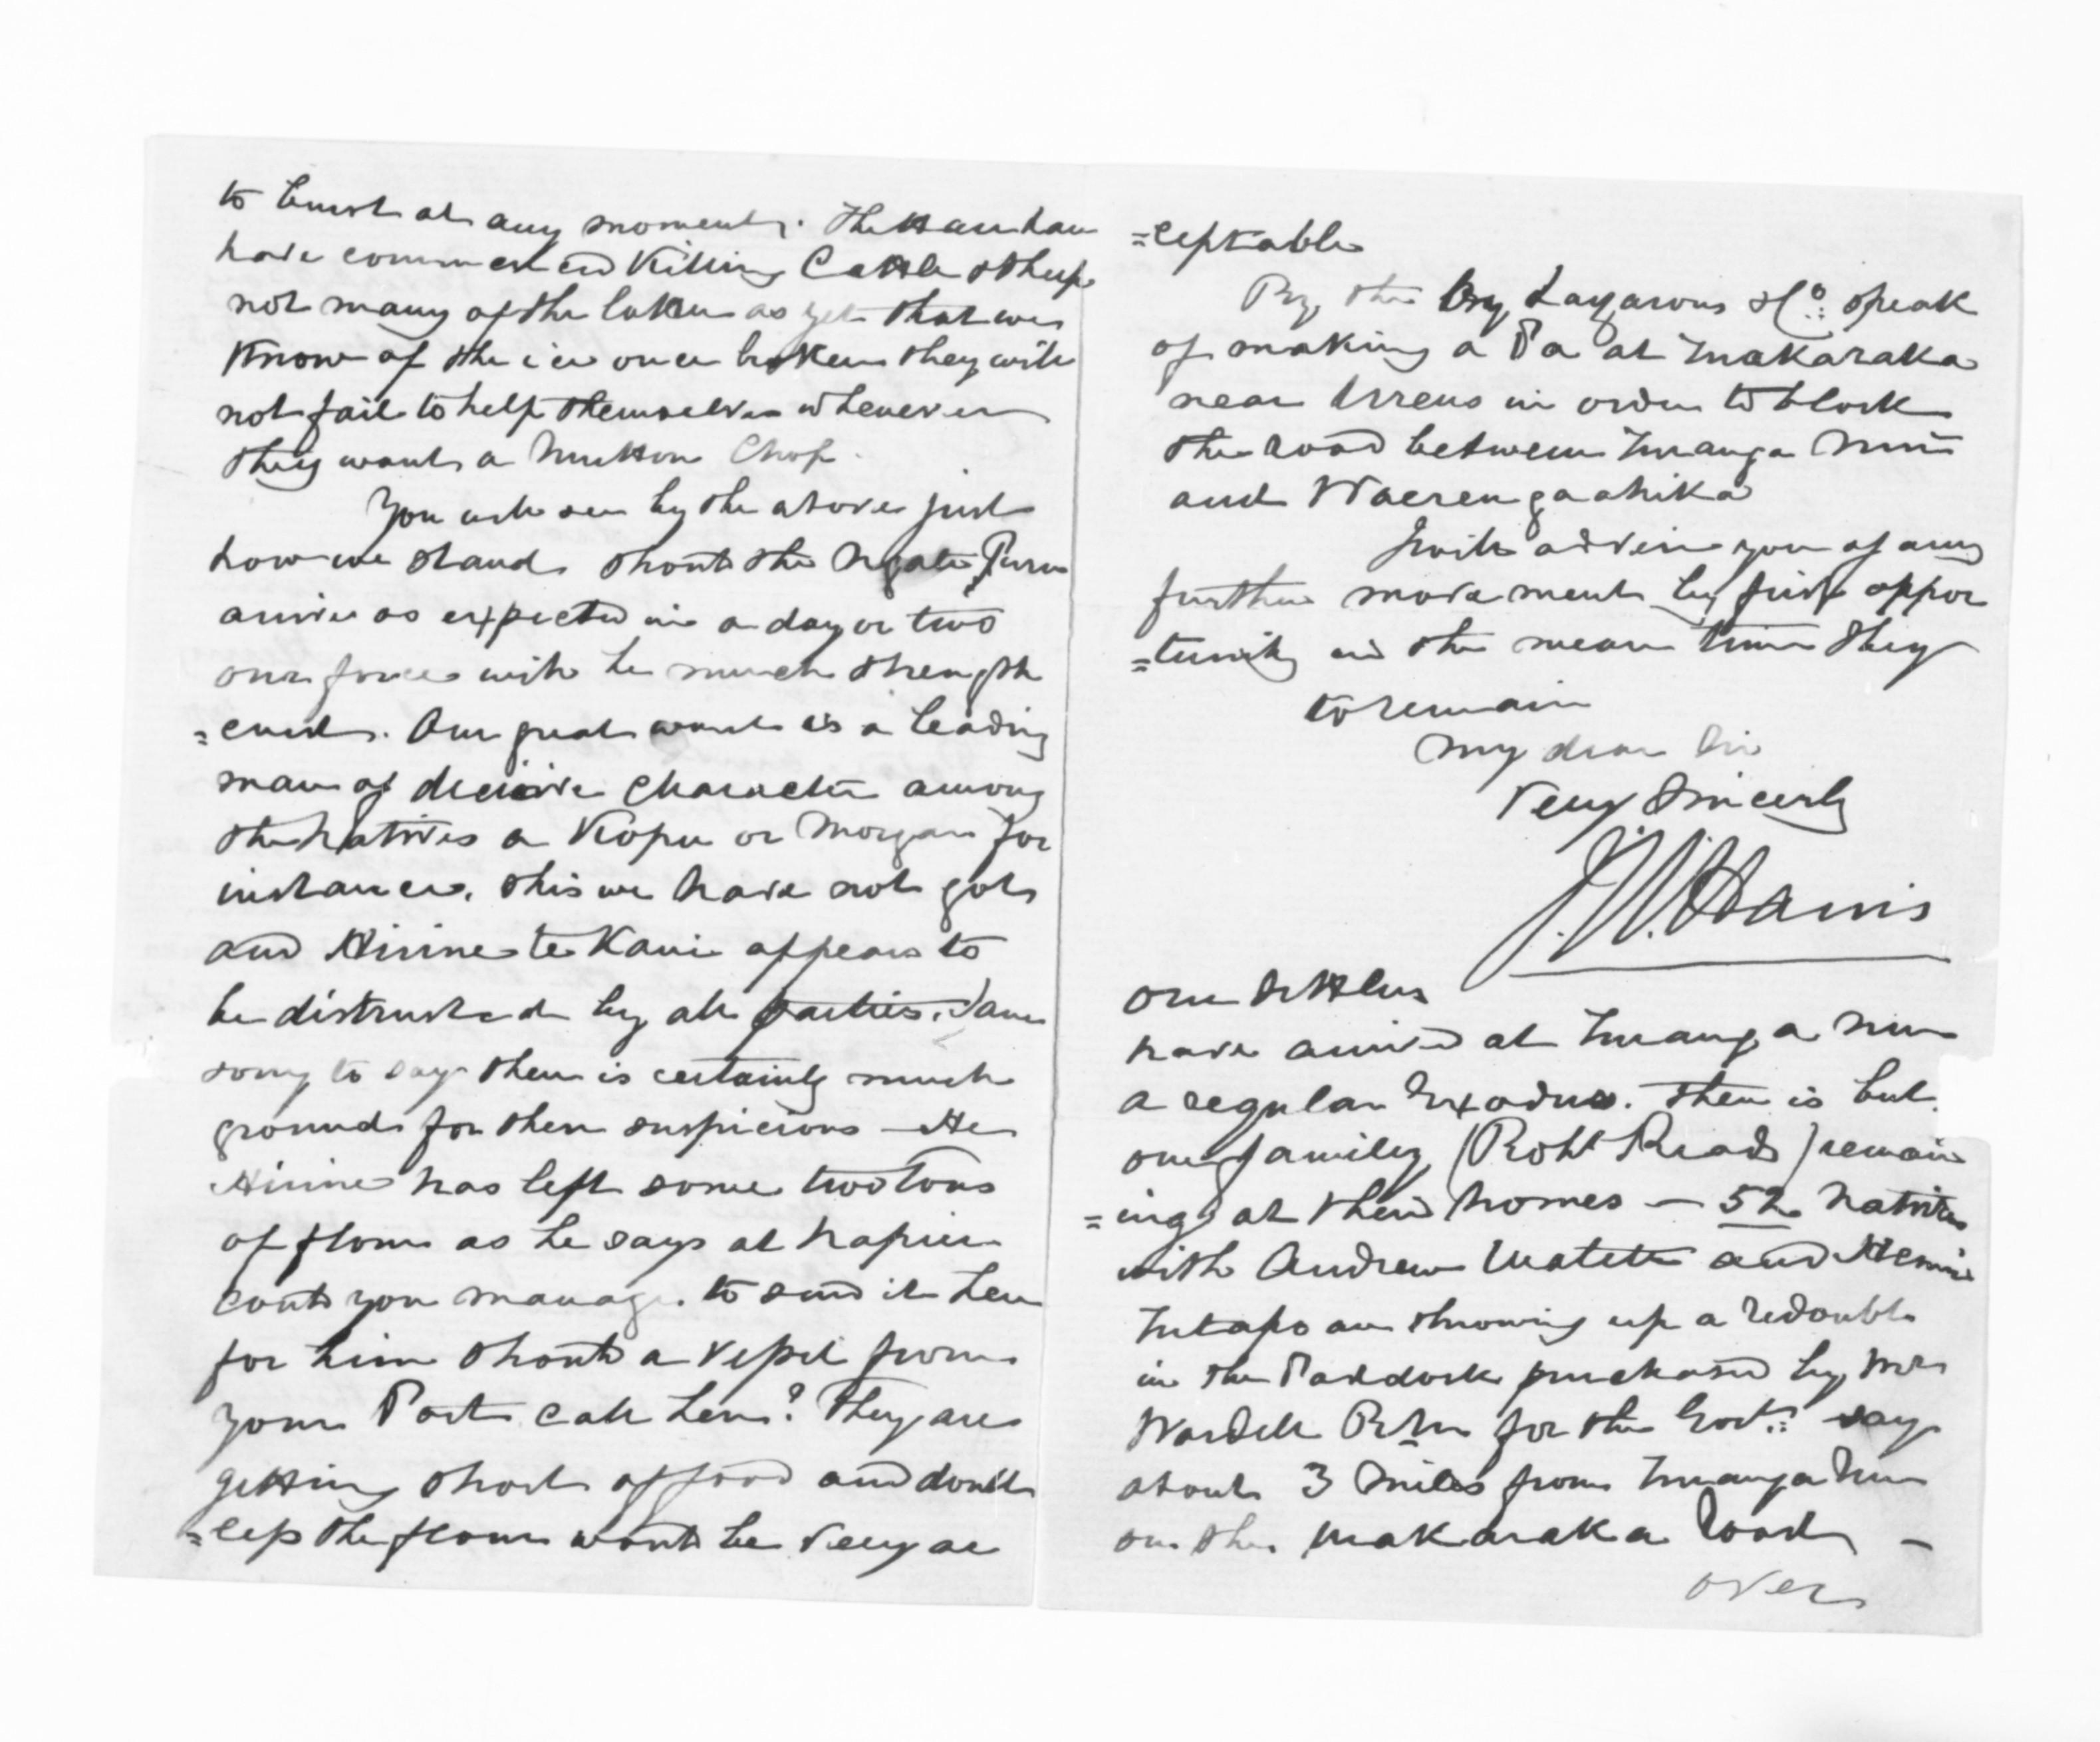 to burst at any moment. The Hauhau
have commenced Killing Cattle & Sheep
not many of the latter as yet that we
Know of the ice once broken they will
not fail to help themselves whenever
they want a Mutton Chop.
You will see by the above just
how we stand. Should the Ngati Puru
arrive as expected in a day or two
our forces will be much strength
=ened. Our great want is a leading
man of decisive Character among
the Natives a Kopu or Morgan for
instance. This we have not got
and Hirine te Kani appears to
be distrusted by all parties. I am
sorry to say there is certainly much
grounds for their suspicions — He
Hirine has left some two Tons
of flour as he says at Napier
Could you manage to send it here
for him should a vessel from
your Port call here? They are
getting short of food and doubt
=less the flour would be very ac
=ceptable
By the by Lazarous & Co. speak
of making a Pa at Makaraka
near in order to block
the road between Turanga Nui
and Waerengaahika
I will advise you of any
further movement by first oppor
=tunity in the mean time
to remain
My dear Sir
Very Sincerly
J. W. Harris
Our Settlers
have arrived at Turanga Nui
a regular Exodus. There is but
one family (Robt Read) remain
=ing at their homes — 52 Natives
with Andrew and
are throwing up a redoubt
in the Paddock purchased by Mr
Wardell R.M. for the Govt. say
about 3 Miles from Turanga Nui
on the Makaraka Road —
over